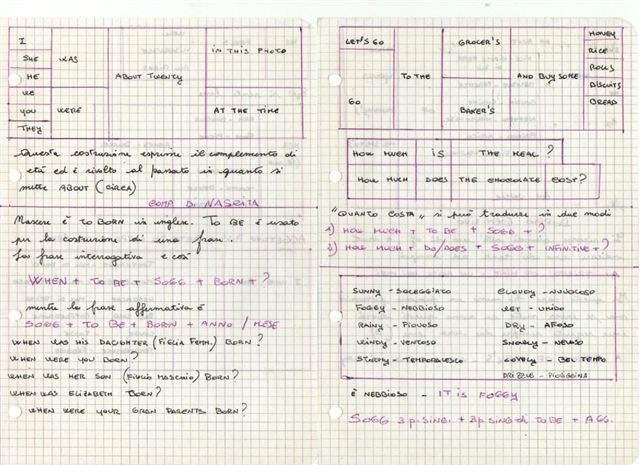 I
SHE
HE
WE
YOU
THEY
WAS
WERE
ABOUT TWENTY
IN THIS PHOTO
AT THE TIME
Questa costruzione esprime il complemento di
età ed è rivolto al passato in quanto si
mette ABOUT (CIRCA)
COMP. DI NASCITA
Nascere è TO BORN in inglese. TO BE è usato
per la costruzione di una frase.
La frase interrogativa è così
WHEN + TO BE + SOGG + BORN + ?
mentre la frase affermativa è
SOGG + TO BE + BORN + ANNO / MESE
WHEN WAS HIS DAUGHTER (FIGLIA FEMM.) BORN?
WHEN WERE YOU BORN?
WHEN WAS HER SON (FIGLIO MASCHIO) BORN?
WHEN WAS ELIZABETH BORN?
WHEN WERE YOUR GRAN PARENTS BORN?
LET'S GO
GO
TO THE
GROCER'S
BAKER'S
AND BUY SOME
HONEY
RICE
ROLLS
BISCUITS
BREAD
HOW MUCH IS THE MEAL?
HOW MUCH DOES THE CHOCOLATE COST?
"QUANTO COSTA" si può tradurre in due modi
1) HOW MUCH + TO BE + SOGG + ?
2) HOW MUCH + DO/DOES + SOGG + INFINITIVE + ?
SUNNY - SOLEGGIATO
FOGGY - NEBBIOSO
RAINY - PIOVOSO
WINDY - VENTOSO
STORMY - TEMPORALESCO
CLOUDY - NUVOLOSO
WET - UMIDO
DRY - AFOSO
SNOWLY - NEVOSO
LOVELY - BEL TEMPO
DRIZZLE - PIOGGINA
È NEBBIOSO - IT IS FOGGY
SOGG 3 p. SING. + 3 p SING di TO BE + AGG.